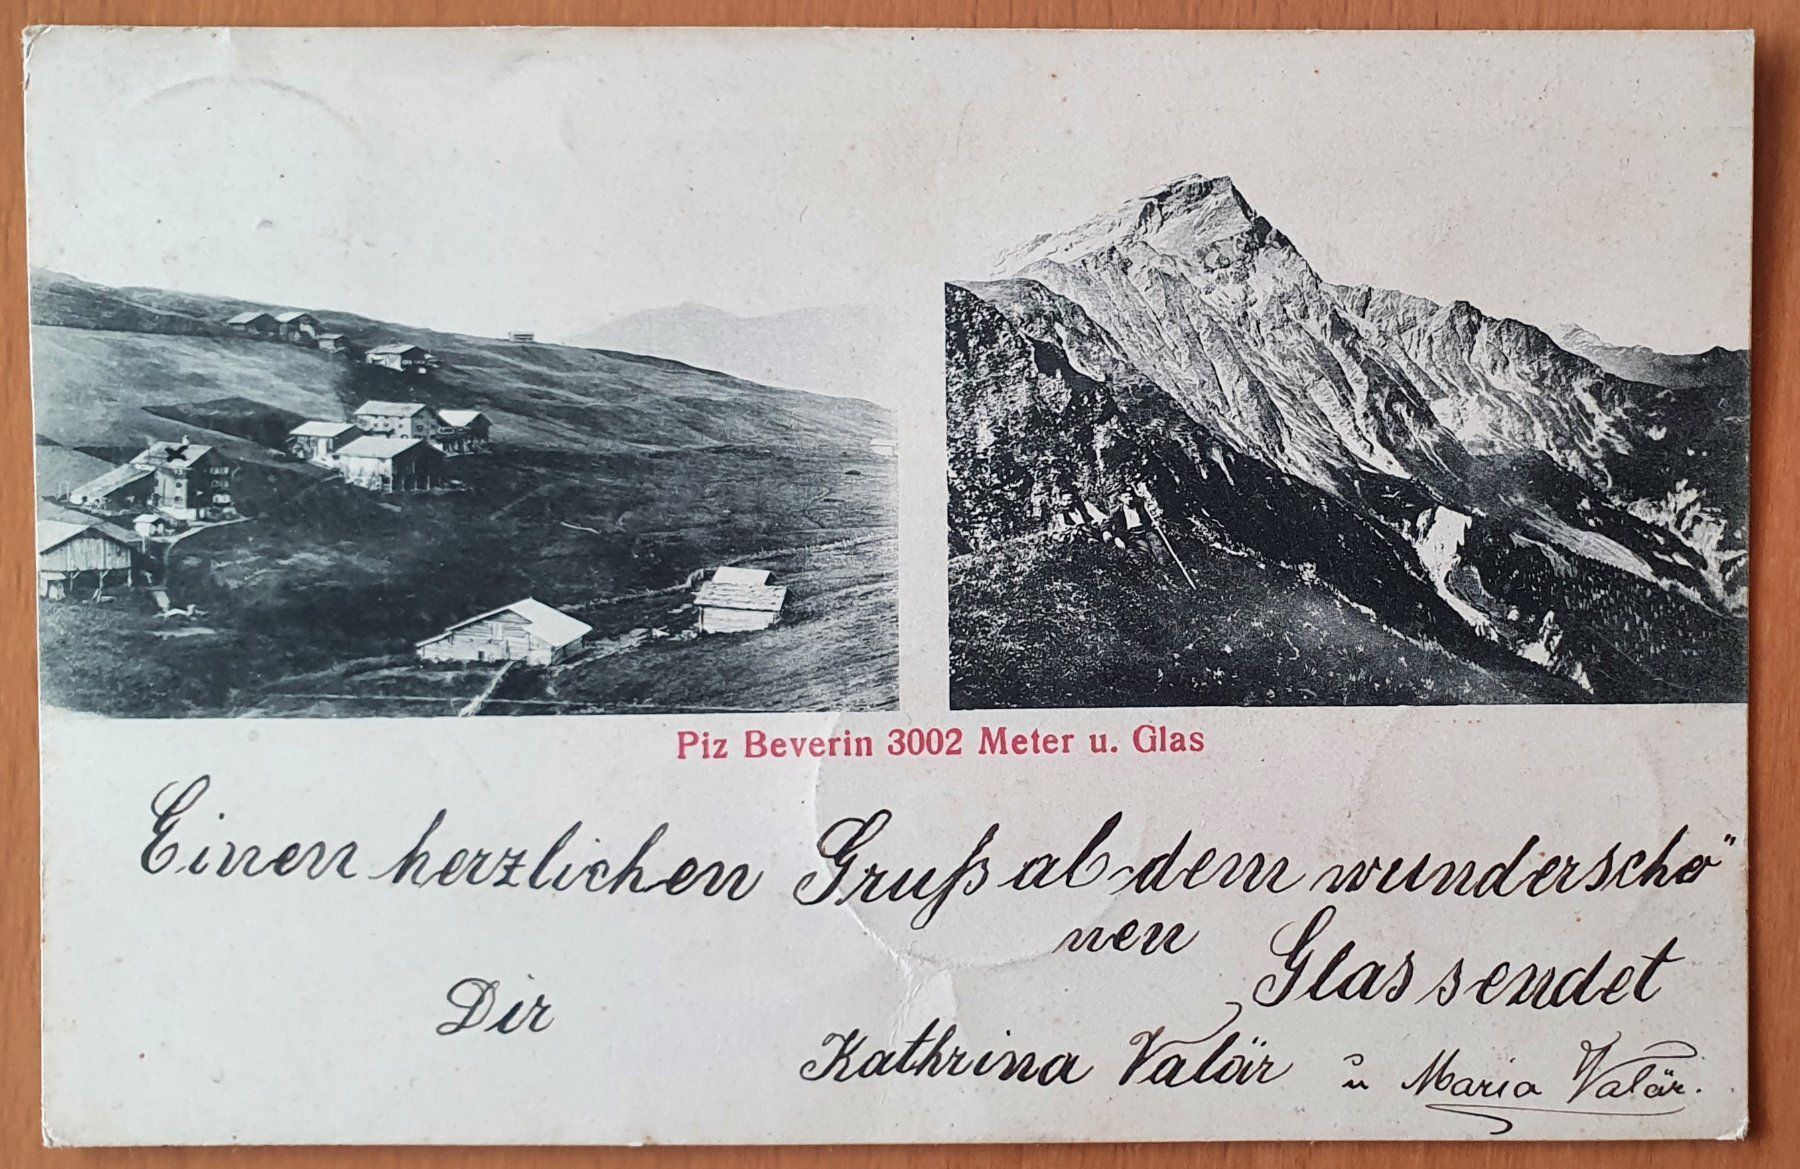 Piz Beverin 3002 Meter u. Glas
Einen herzlichen Gruß ab dem wunderschö"
nen
Glas sendet
Dir
Kathrina Valär u Maria Valär.